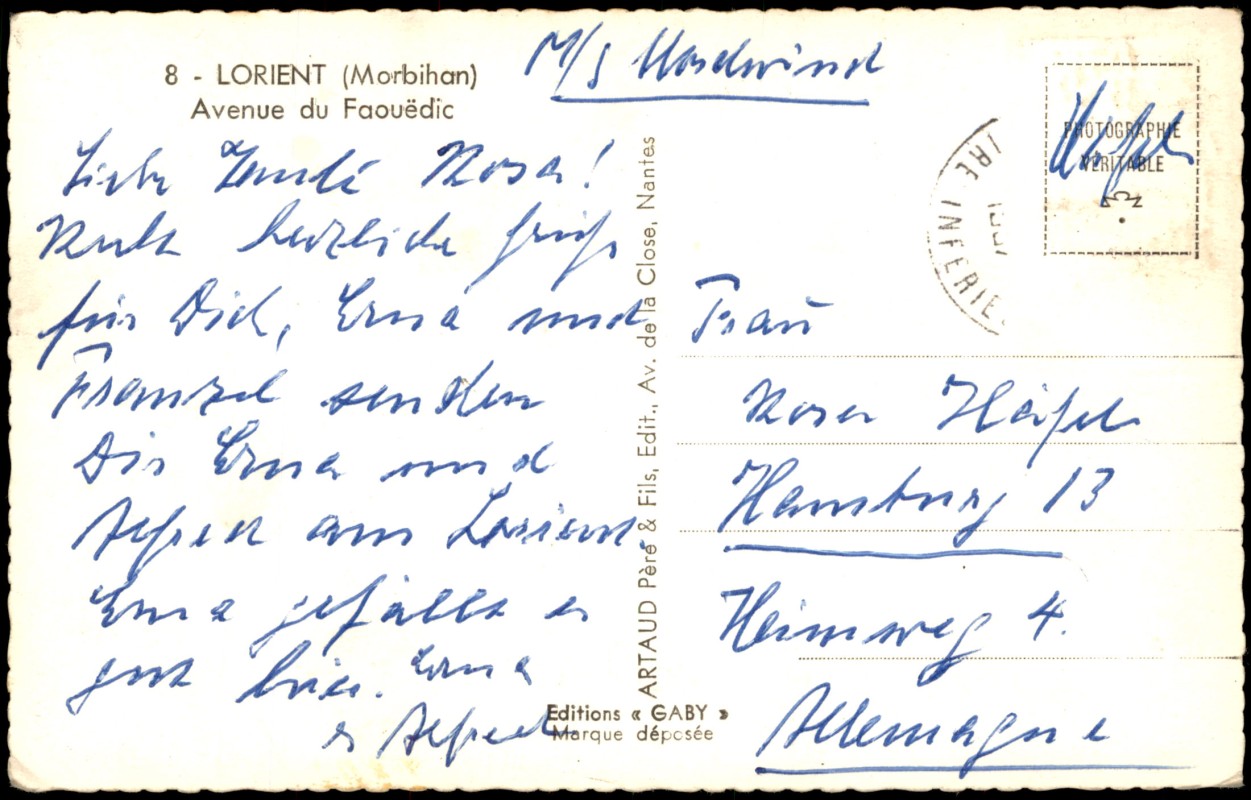 8 - LORIENT (Morbihan)
Avenue du Faouëdic
M/S Nordwind
Liebe Tante Rosa!
Recht herzliche Grüße
für Dich, Erna und
Franzel senden
Dir Erna und
Alfred aus Lorient.
Erna gefällt es
gut hier. Erna
Alfred
ARTAUD Père & Fils, Edit., Av. de la Close, Nantes
Editions « GABY »
Marque déposée
PHOTOGRAPHIE
VÉRITABLE
IRE INFERIE
Frau
Rosa
Hamburg 13
Heimweg 4.
Allemagne